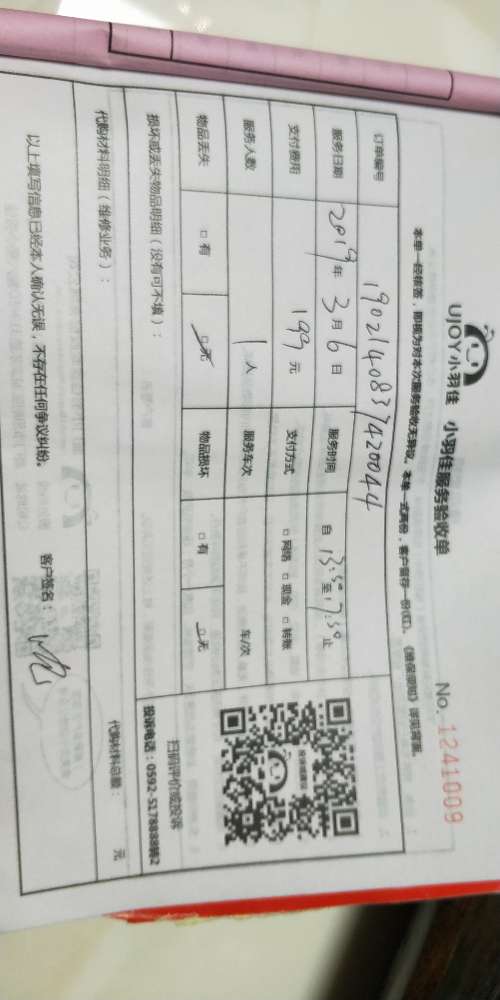 UJOY小羽佳 小羽佳服务验收单 No. 1241009
本单一经核签，即视为对本次服务验收无异议。本单一式两份，客户留存一份(红)。《维保须知》详见背面。
订单编号 1902140837420044
服务日期 2019年3月6日 服务时间 自13:30至17:30止
支付费用 199元 支付方式 □网络 □现金 □转账
服务人数 1人 服务车次 车/次
物品丢失 □有 □无 物品损坏 □有 □无
损坏或丢失物品明细（没有可不填）：
扫码评价或投诉
投诉电话：0592-5178888转2
代购材料明细（维修业务）： 代购材料总额： 元
以上填写信息已经本人确认无误，不存在任何争议纠纷。 客户签名：